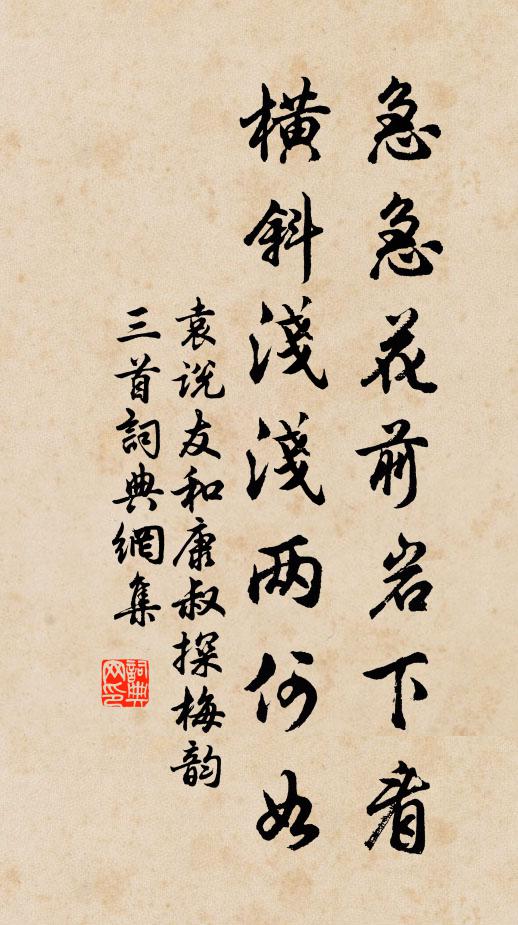 急急花前岩下看
橫斜淺淺兩何如
袁说友和康叔探梅韵
三首詞典網集
詞典網印